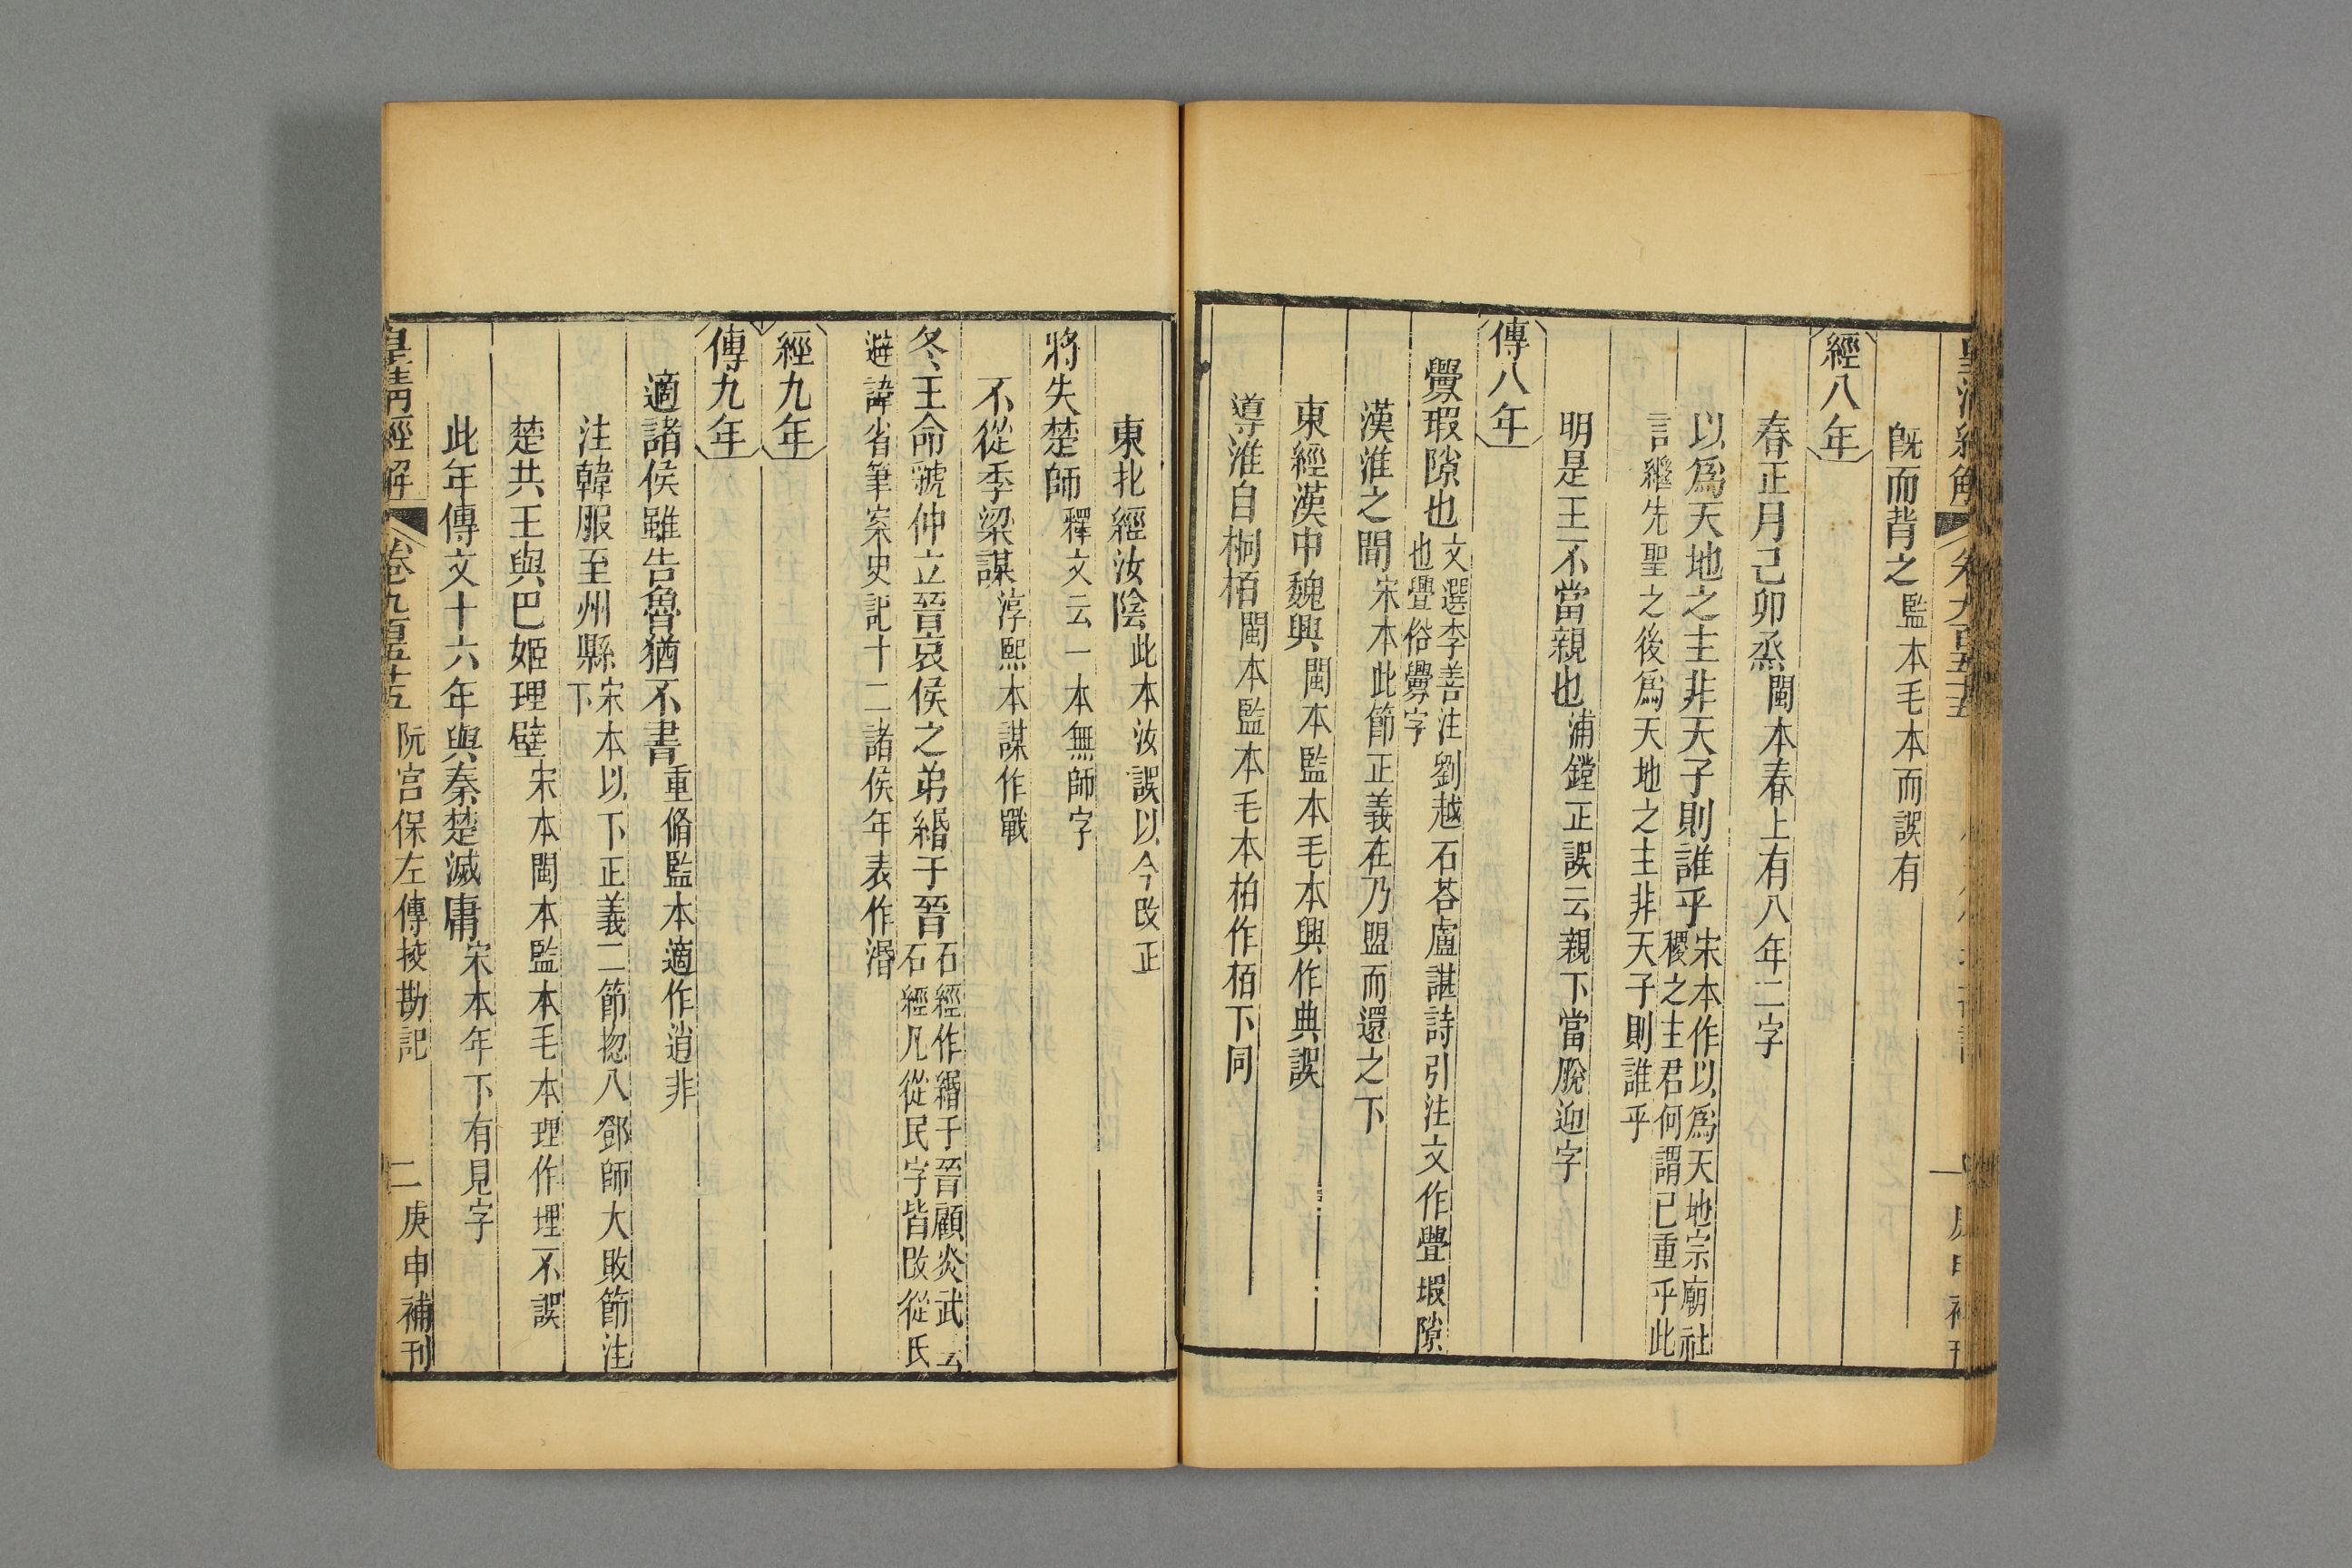 既而背之監本毛本而誤有
經八年
春正月己卯烝閩本春上有八年二字
以爲天地之主非天子則誰乎宋本作以爲天地宗廟社
稷之主君何謂已重乎此
言繼先聖之後爲天地之主非天子則誰乎
明是王不當親也浦鏜正誤云親下當脫迎字
傳八年
釁瑕隙也文選李善注劉越石荅盧諶詩引注文作舋瑕隙
也舋俗釁字
漢淮之間宋本此節正義在乃盟而還之下
東經漢中魏興閩本監本毛本興作典誤
導淮自桐栢閩本監本毛本柏作栢下同
東北經汝陰此本汝誤以今改正
將失楚師釋文云一本無師字
不從季梁謀淳熙本謀作戰
冬王命虢仲立晉哀侯之弟緡于晉石經作緡于晉顧炎武云
石經凡從民字皆改從氏
避諱省筆案史記十二諸侯年表作湣
經九年
傳九年
適諸侯雖告魯猶不書重脩監本適作逍非
注韓服至州縣宋本以下正義二節揔入鄧師大敗節注
下
楚共王與巴姬理璧宋本閩本監本毛本理作埋不誤
此年傳文十六年與秦楚滅庸宋本年下有見字
皇清經解 卷九百五十五 阮宮保左傳挍勘記 二 庚申補刊